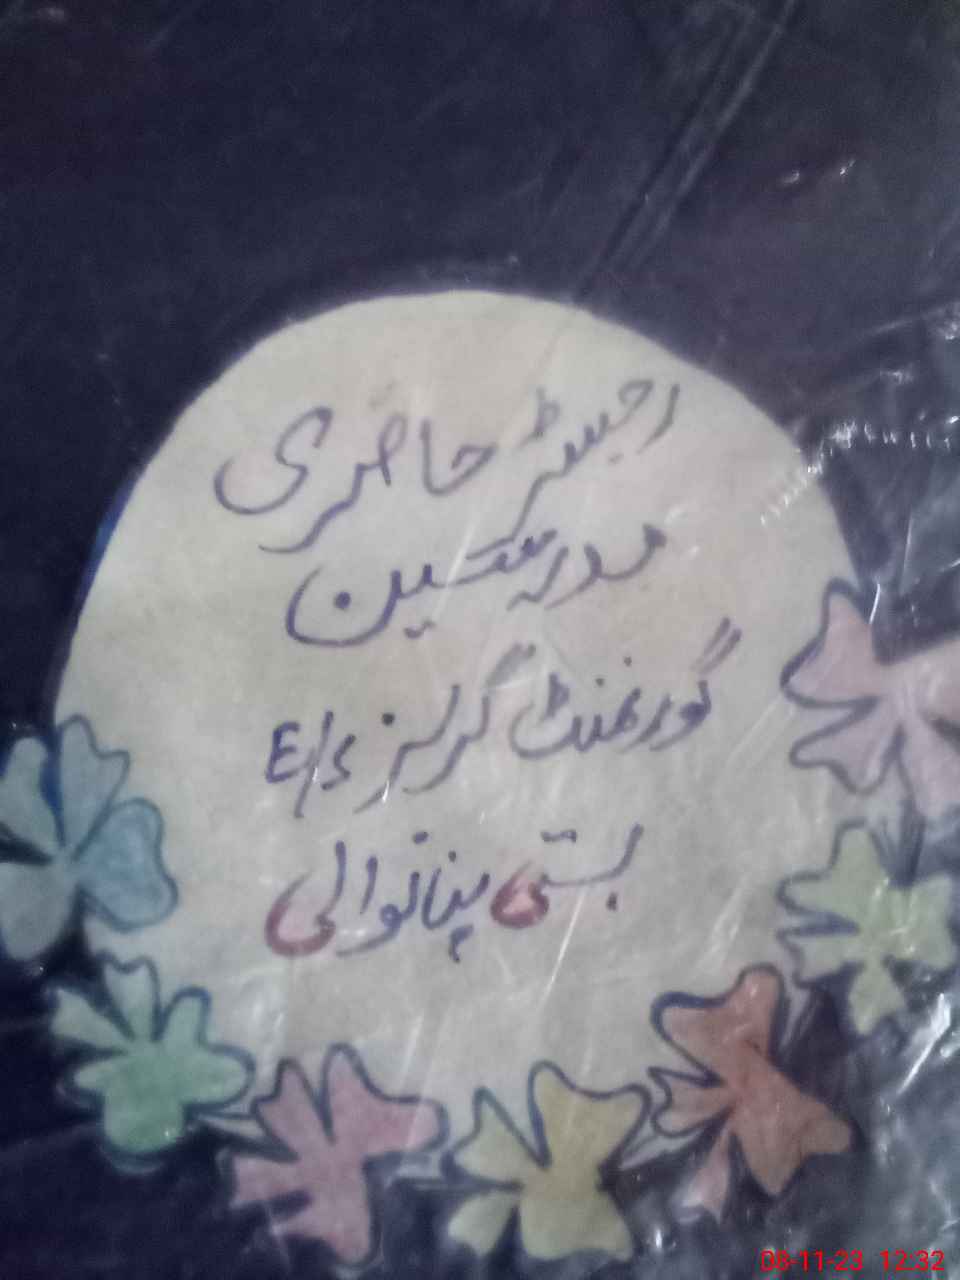 رجسٹر حاضری
مدرسین
گورنمنٹ گرلز E/S
بستی پناتوالی
08-11-23 12:32